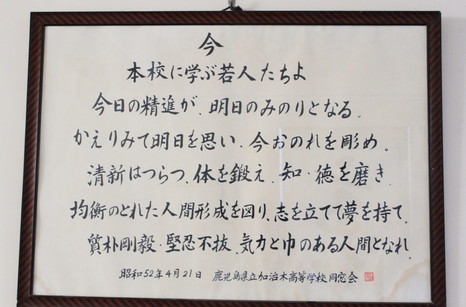 今
本校に学ぶ若人たちよ
今日の精進が、明日のみのりとなる、
かえりみて明日を思い、今おのれを彫め、
清新はつらつ、体を鍛え、知・徳を磨き
均衡のとれた人間形成を図り、志を立てて夢を持て、
質朴剛毅・堅忍不抜、気力と巾のある人間となれ、
昭和52年4月21日 鹿児島県立加治木高等学校同窓会